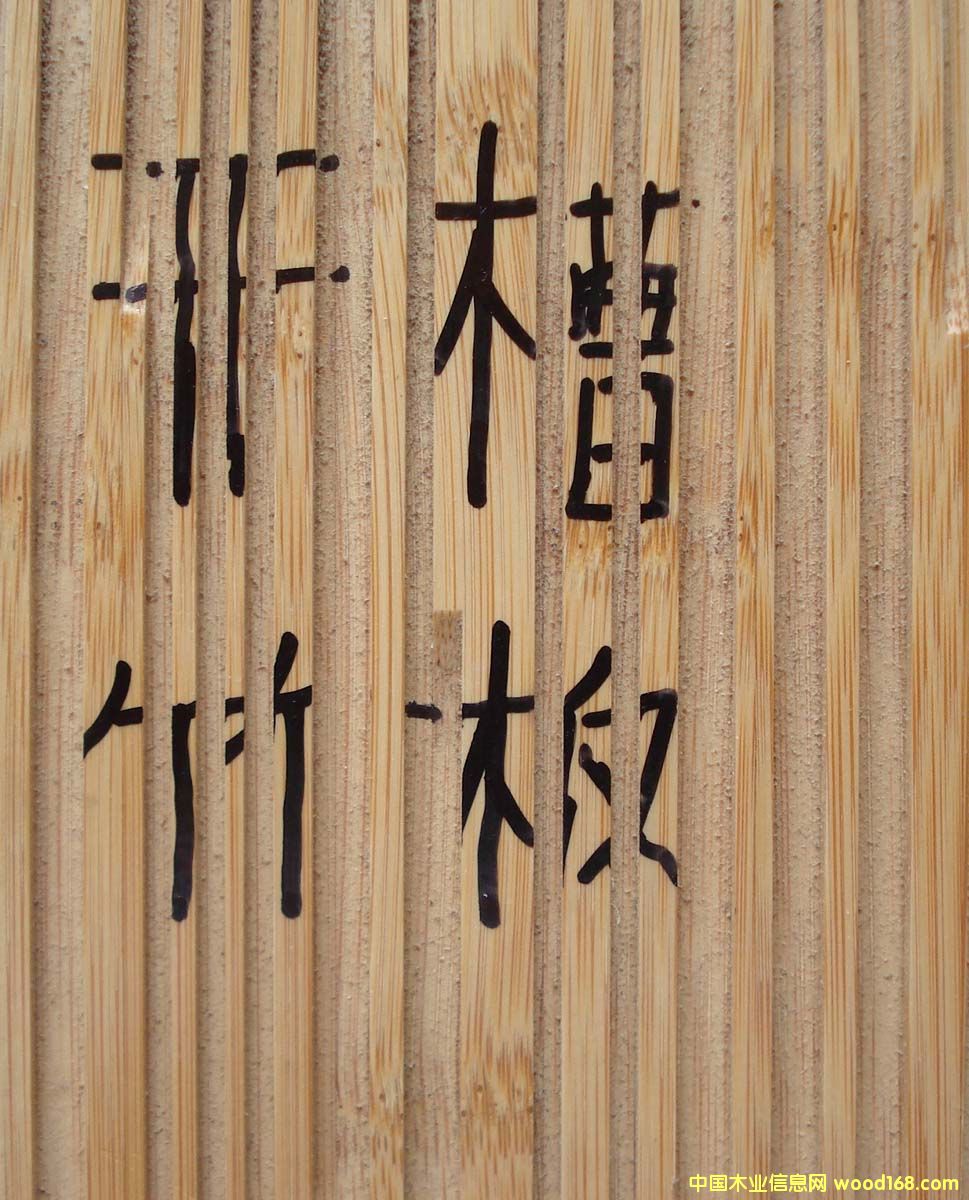 开槽
竹板
中国木业信息网 wood168.com